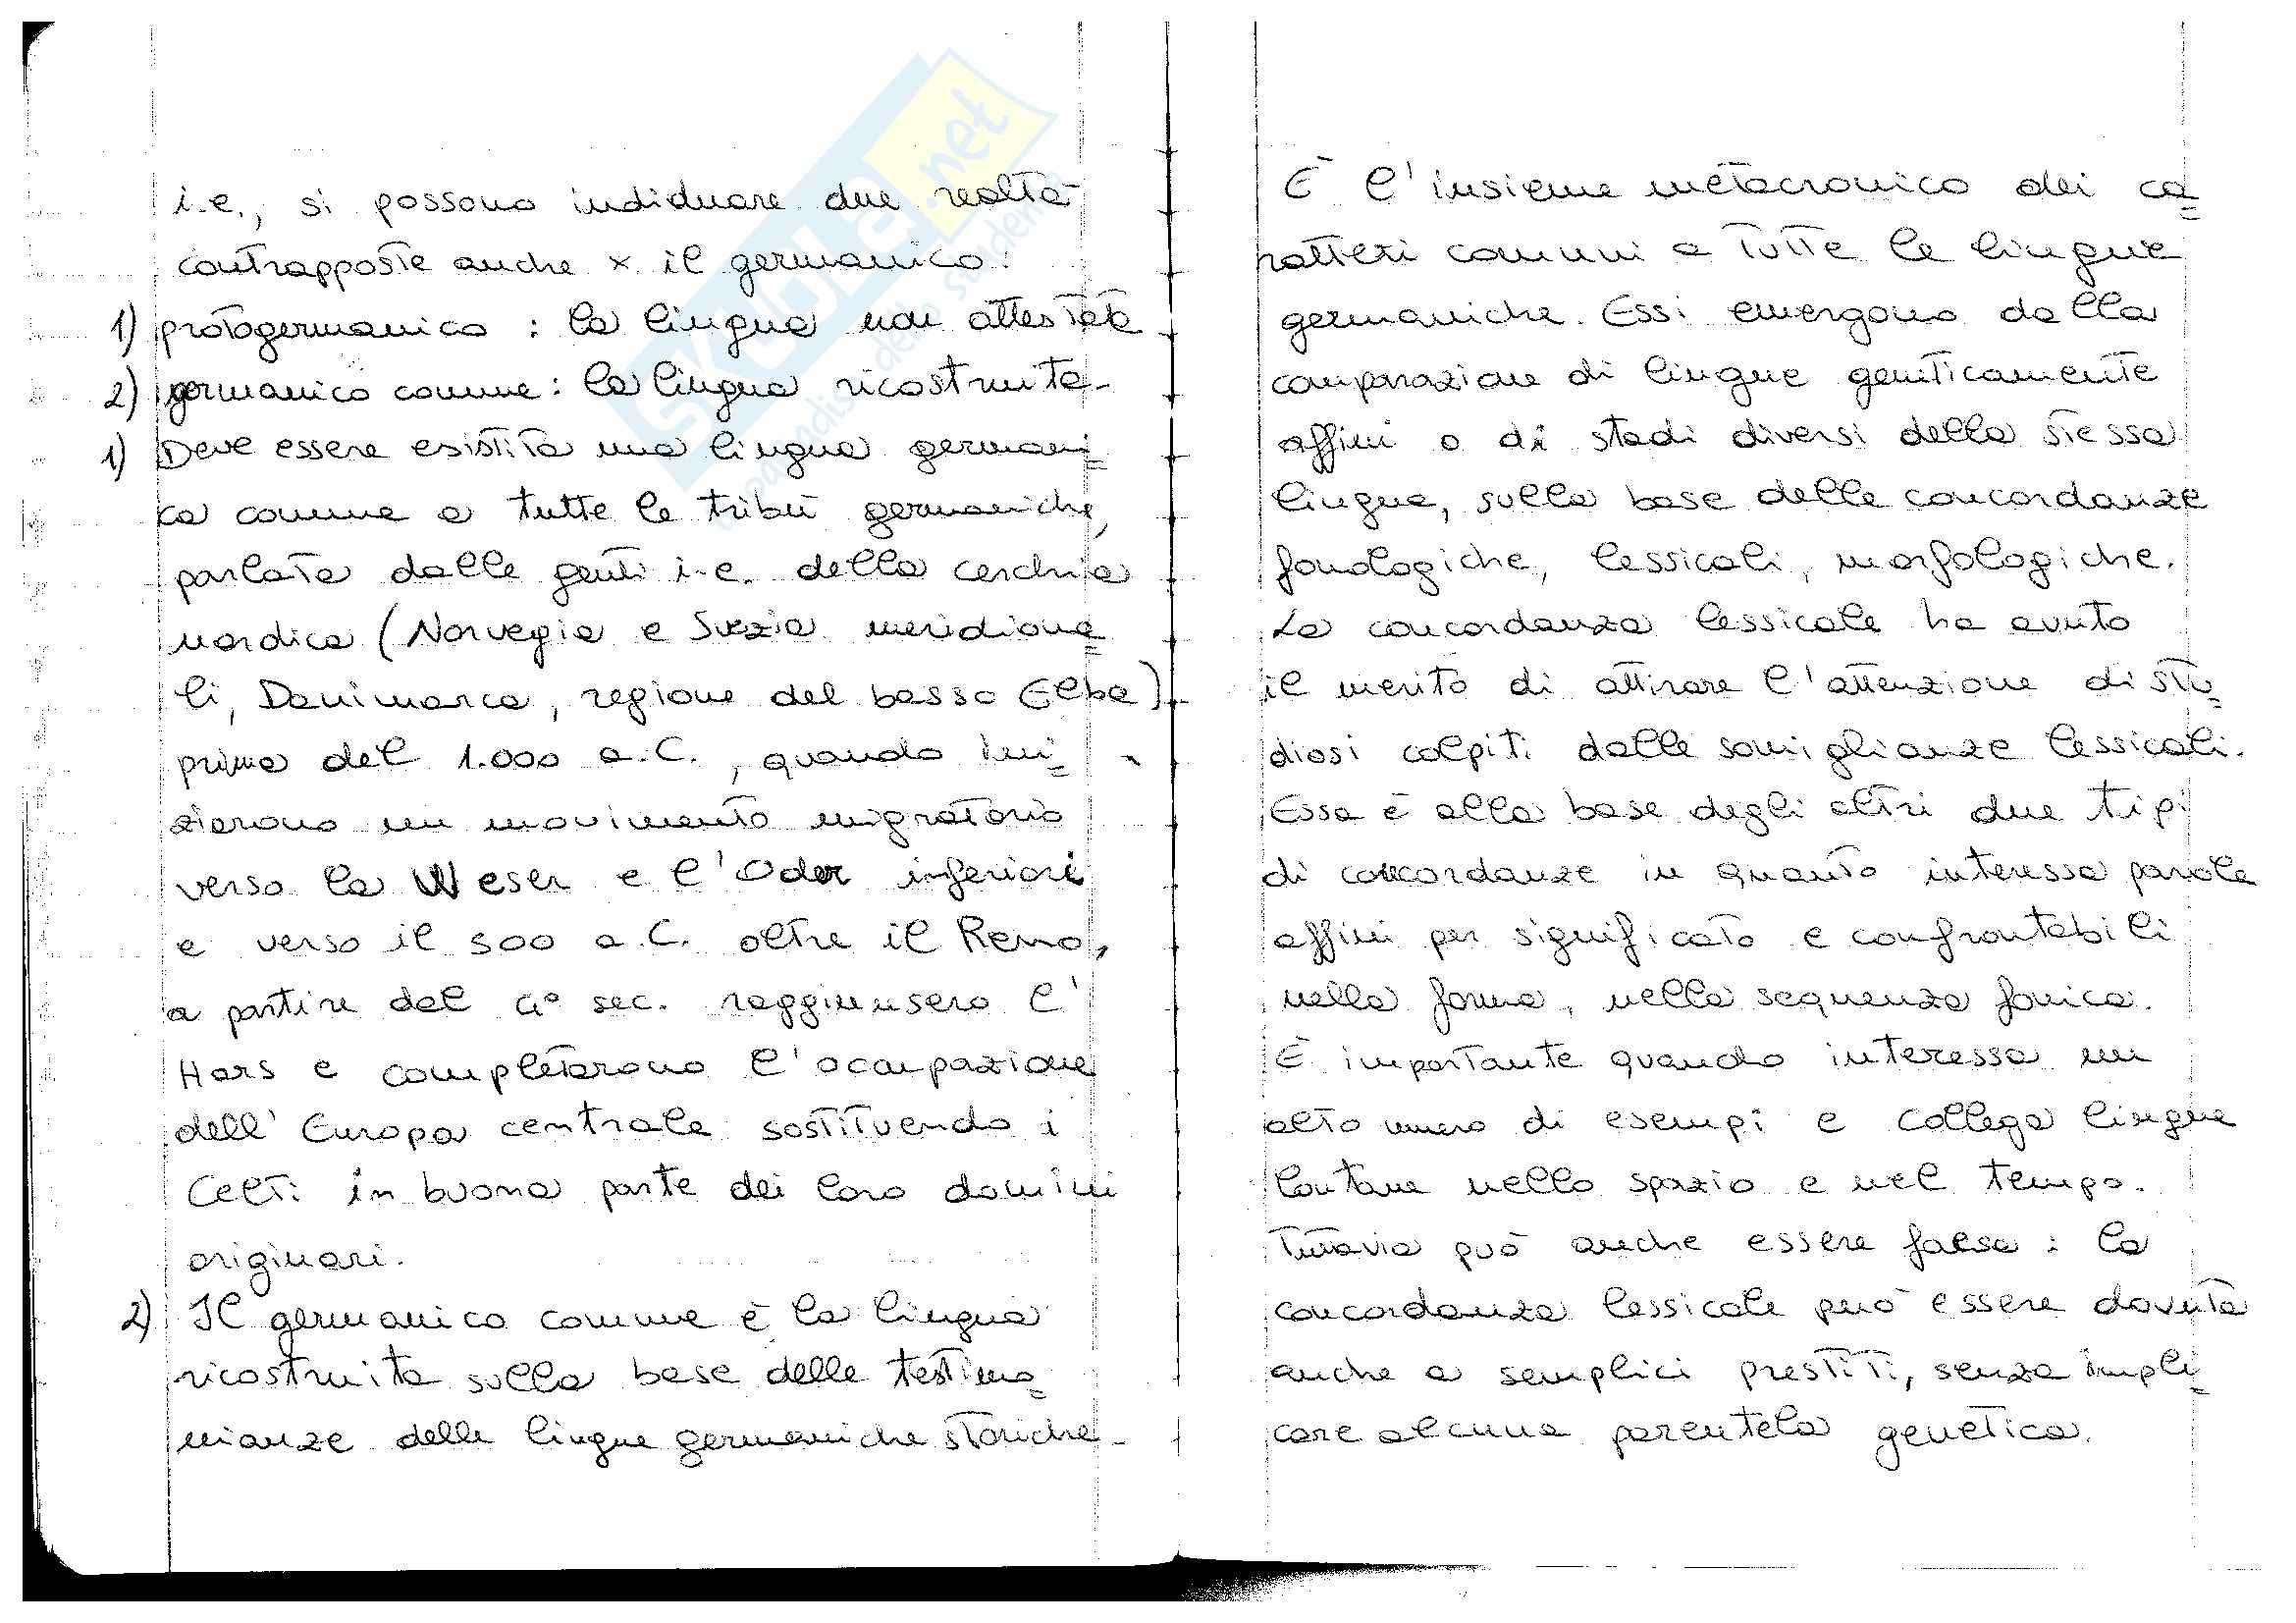 i.e., si possono indiduare due realtà
contrapposte anche x il germanico:
1) protogermanico : la lingua non attestata
2) germanico comune: la lingua ricostruita.
1) Deve essere esistita una lingua germani=
ca comune a tutte le tribù germaniche,
parlata dalle genti i.e. della cerchia
nordica (Norvegia e Svezia meridiona=
li, Danimarca, regione del basso Elba)
prima del 1.000 a.C., quando ini=
ziarono un movimento migratorio
verso la Weser e l'Oder inferiori
e verso il 500 a.C. oltre il Reno,
a partire dal 4° sec. raggiunsero l'
Hars e completarono l'occupazione
dell' Europa centrale sostituendo i
Celti in buona parte dei loro domini
originari.
2) Il germanico comune è la lingua
ricostruita sulla base delle testimo=
nianze delle lingue germaniche storiche.
È l'insieme metacronico dei ca=
ratteri comuni a tutte le lingue
germaniche. Essi emergono dalla
comparazione di lingue geniticamente
affini o di stadi diversi della stessa
lingua, sulla base delle concordanze
fonologiche, lessicali, morfologiche.
La concordanza lessicale ha avuto
il merito di attirare l'attenzione di stu=
diosi colpiti dalle somiglianze lessicali.
Essa è alla base degli altri due tipi
di concordanze in quanto interessa parole
affini per significato e confrontabili
nella forma, nella sequenza fonica.
È importante quando interessa un
alto numero di esempi e collega lingue
lontane nello spazio e nel tempo.
Tuttavia può anche essere falsa : la
concordanza lessicale può essere dovuta
anche a semplici prestiti, senza impli=
care alcuna parentela genetica.
SKUOLA.net
il paradiso dello studente